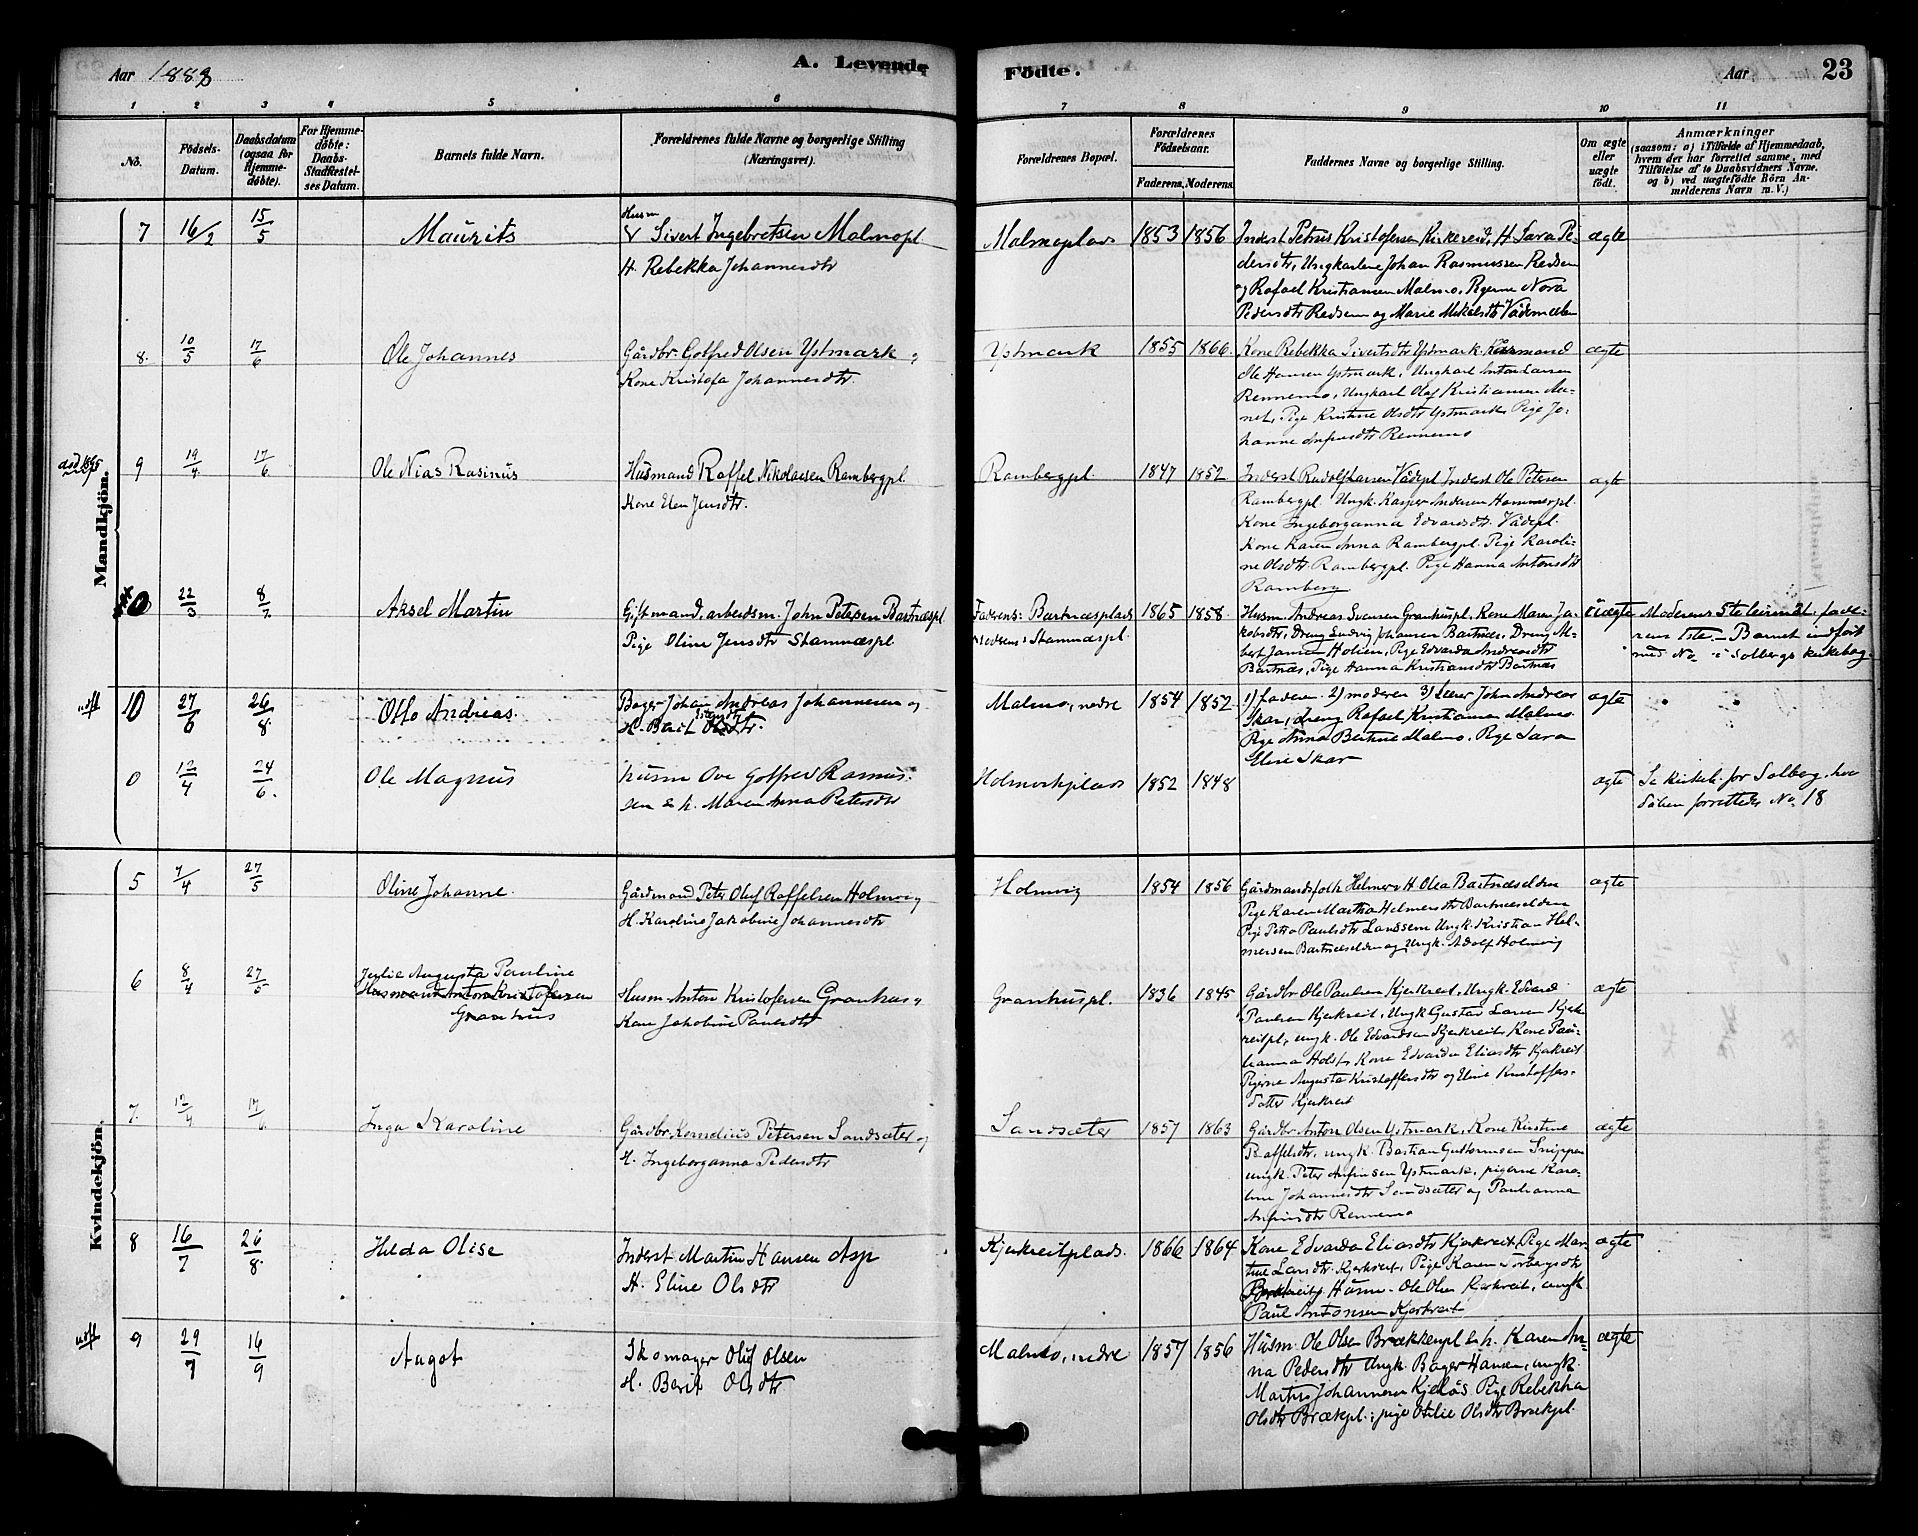 Aar 1888
A. Levende Födte.
Aar
23
1 2 3 4 5 6 7 8 9 10 11
No.
Födsels-Datum.
Daabsdatum (ogsaa for Hjemme-döbte).
For Hjemme-döbte: Daabs-Stadfæstel-ses Datum.
Barnets fulde Navn.
Forældrenes fulde Navne og borgerlige Stilling (Næringsvei).
Forældrenes Bopæl.
Forældrenes Födselsaar.
Faderens. Moderens.
Faddernes Navne og borgerlige Stilling.
Om ægte eller uægte födt.
Anmærkninger
(saasom: a) i Tilfælde af Hjemmedaab, hvem der har forrettet samme, med Tilföielse af to Daabsvidners Navne, og b) ved uægtefödte Börn An-melderens Navn m. V.)
Mandkjön.
7 16/2 15/5 Maurits
Husm
Sivert Ingebretsen Malmopl
H. Rebekka Johannesdtr
Malmoplads 1853 1856
Inderst Petrus Kristofersen Kirkereid, H. Sara Pe-
dersdtr, Ungkarlene Johan Rasmussen Redsem
og Rafael Kristiansen Malmo, Pigerne Nora
Pedersdtr Redsem og Marie Mikalsdtr
ægte
8. 10/5 17/6 Ole Johannes
Gårdbr. Gotfred Olsen Ystmark og
Kone Kristofa Johannesdtr.
Ystmark 1855 1866.
Kone Rebekka Sivertsdtr Ystmark.
Ole Hansen Ystmark, Ungkarl Anton Larsen
Rennemo, Ungkarl Olaf Kristiansen Au-
net, Pige Kristine Olsdtr Ystmark, Pige Jo-
hanne Anfinsdtr Rennemo
ægte
9 19/4 17/6 Ole Nias Rasinus
Husmand Raffel Nikolaisen Rambergpl.
Kone Elen Jensdtr.
Rambergpl. 1847 1852
Inderst Rudolf Larsen Vådepl. Inderst Ole Petersen
Rambergpl. Ungk. Kasper Andersen Hammerpl.
Kone Ingeborganna Edvardsdtr. Vådepl.
Kone Karen Anna Rambergpl. Pige Karoli-
ne Olsdtr. Rambergpl. Pige Hanna Antonsdtr
Ramberg
ægte
0 22/3 8/7 Aksel Martin
Gift mand, arbeidsm. John Petersen Bartnæspl
Pige Oline Jensdtr Stamnæspl
Faderens: Bartnæsplads
Modrens: Stamnæspl.
1865 1858
Husm. Andreas Svensen Granhuspl, Kone Maren Ja-
kobsdtr, Dreng Ludvig Johansen Bartnæs, Dreng Al-
bert Jansen Holien, Pige Edvarda Andreasdtr
Bartnæs, Pige Hanna Kristiansdtr Bartnæs
Uægte
Moderens 5te leiermål, fade-
rens 1ste. - Barnet indført
med No i Solbergs kirkebog.
10 27/6 26/8 Otto Andreas.
Bager Johan Andreas Johannesen og
H. Berit
Malmo, nedre 1854 1852
1) faderen 2) moderen 3) Lærer John Andreas
Skar, dreng Rafael Kristiansen Malmo.
Pige Anna Bertine Malmo, Pige Sara
Eline Skar
ægte
0 12/4 24/6. Ole Magnus
husm Ove Gotfred Rasmus-
sen & h. Maren Anna Petersdtr
Holmvikplads 1852 1848
ægte
Se kirkeb. for Solberg, hvor
dåben forrettedes No. 18
Kvindekjön.
5 7/4 27/5 Oline Johanne.
Gårdmand Peter Oluf Raffelsen Holmvig
H. Karoline Jakobine Johannesdtr
Holmvig 1854 1856
Gårdmandsfolk Helmer & H. Olea Bartnæselden
Pige Karen Martha Helmersdtr Bartnæselden
Pige Petra Paulsdtr Landsem Ungk. Kristian Hel-
mersen Bartnæselden og Ungk. Adolf Holmvig
ægte
6 8/4 27/5 Augusta Pauline
Husmand Anton Kristofersen
Granhus
Husm. Anton Kristofersen Granhus og
Kone Jakobine Paulsdtr
Granhuspl. 1836 1845
Gårdbr. Ole Paulsen Kjerkreit, Ungk. Edvard
Paulsen Kjerkreit, Ungk Gustav Larsen Kjerk-
reitpl, ungk. Ole Edvardsen Kjerkreit, Kone Pau-
lianna Holst, Kone Edvarda Eliasdtr Kjerkreit
Pigerne Augusta Kristoffersdtr og Eline Kristoffers-
datter Kjerkreit
ægte
7. 12/4 17/6 Inga Karoline
Gårdbr. Kornelius Petersen Sandsæter og
H. Ingeborganna Pedersdtr
Sandsæter 1857 1863
Gårdbr Anton Olsen Ystmark, Kone Kirstine
Raffelsdtr, ungk. Bastian Guttormsen Snippen
ungk. Peter Anfinsen Ystmark, pigerne Karo-
line Johannesdtr Sandsæter og Paulianna
Anfinsdtr Rennemo
ægte
8 16/7 26/8 Hilda Olise
Inderst Martin Hansen Asp
H. Eline Olsdtr
Kjerkreitplads. 1866 1864
Kone Edvarda Eliasdtr Kjerkreit, Pige Mar-
tine Larsdtr. Kjerkreit, Pige Karen Torbergsdtr
Husm. Ole Olsen Kjerkreit, ungk
Paul Antonsen Kjerkreit
ægte
9 29/7 16/9 Aagot
Skomager Oluf Olsen
H. Berit Olsdtr
Malmo, nedre 1857 1856
Husm. Ole Olsen Brækkenpl & h. Karen An-
na Pedersdtr Ungk. Bager Hansen, ungk.
Martin Johannesen Kjelås Pige Rebekka
Olsdtr Brækpl.; pige Otilie Olsdtr Brækpl.
ægte